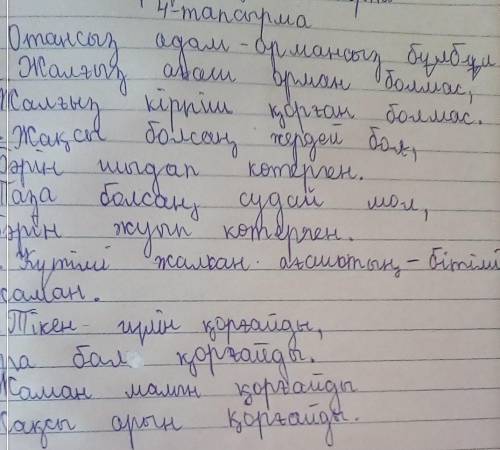 4-тапсырма
Отансыз адам - ормансыз бұлбұл
Жалғыз ағаш орман болмас,
Жалғыз кірпіш қорған болмас.
Жақсы болсаң жердей бол,
Бәрін шыдап көтерген.
Таза болсаң, судай бол,
Бәрін жуып кетерген.
Күтімі жалқан ағаштың - бітімі
саман.
Тікен - гүлін қорғайды,
ра бал қорғайды.
Жаман малын қорғайды
Жақсы арын қорғайды.